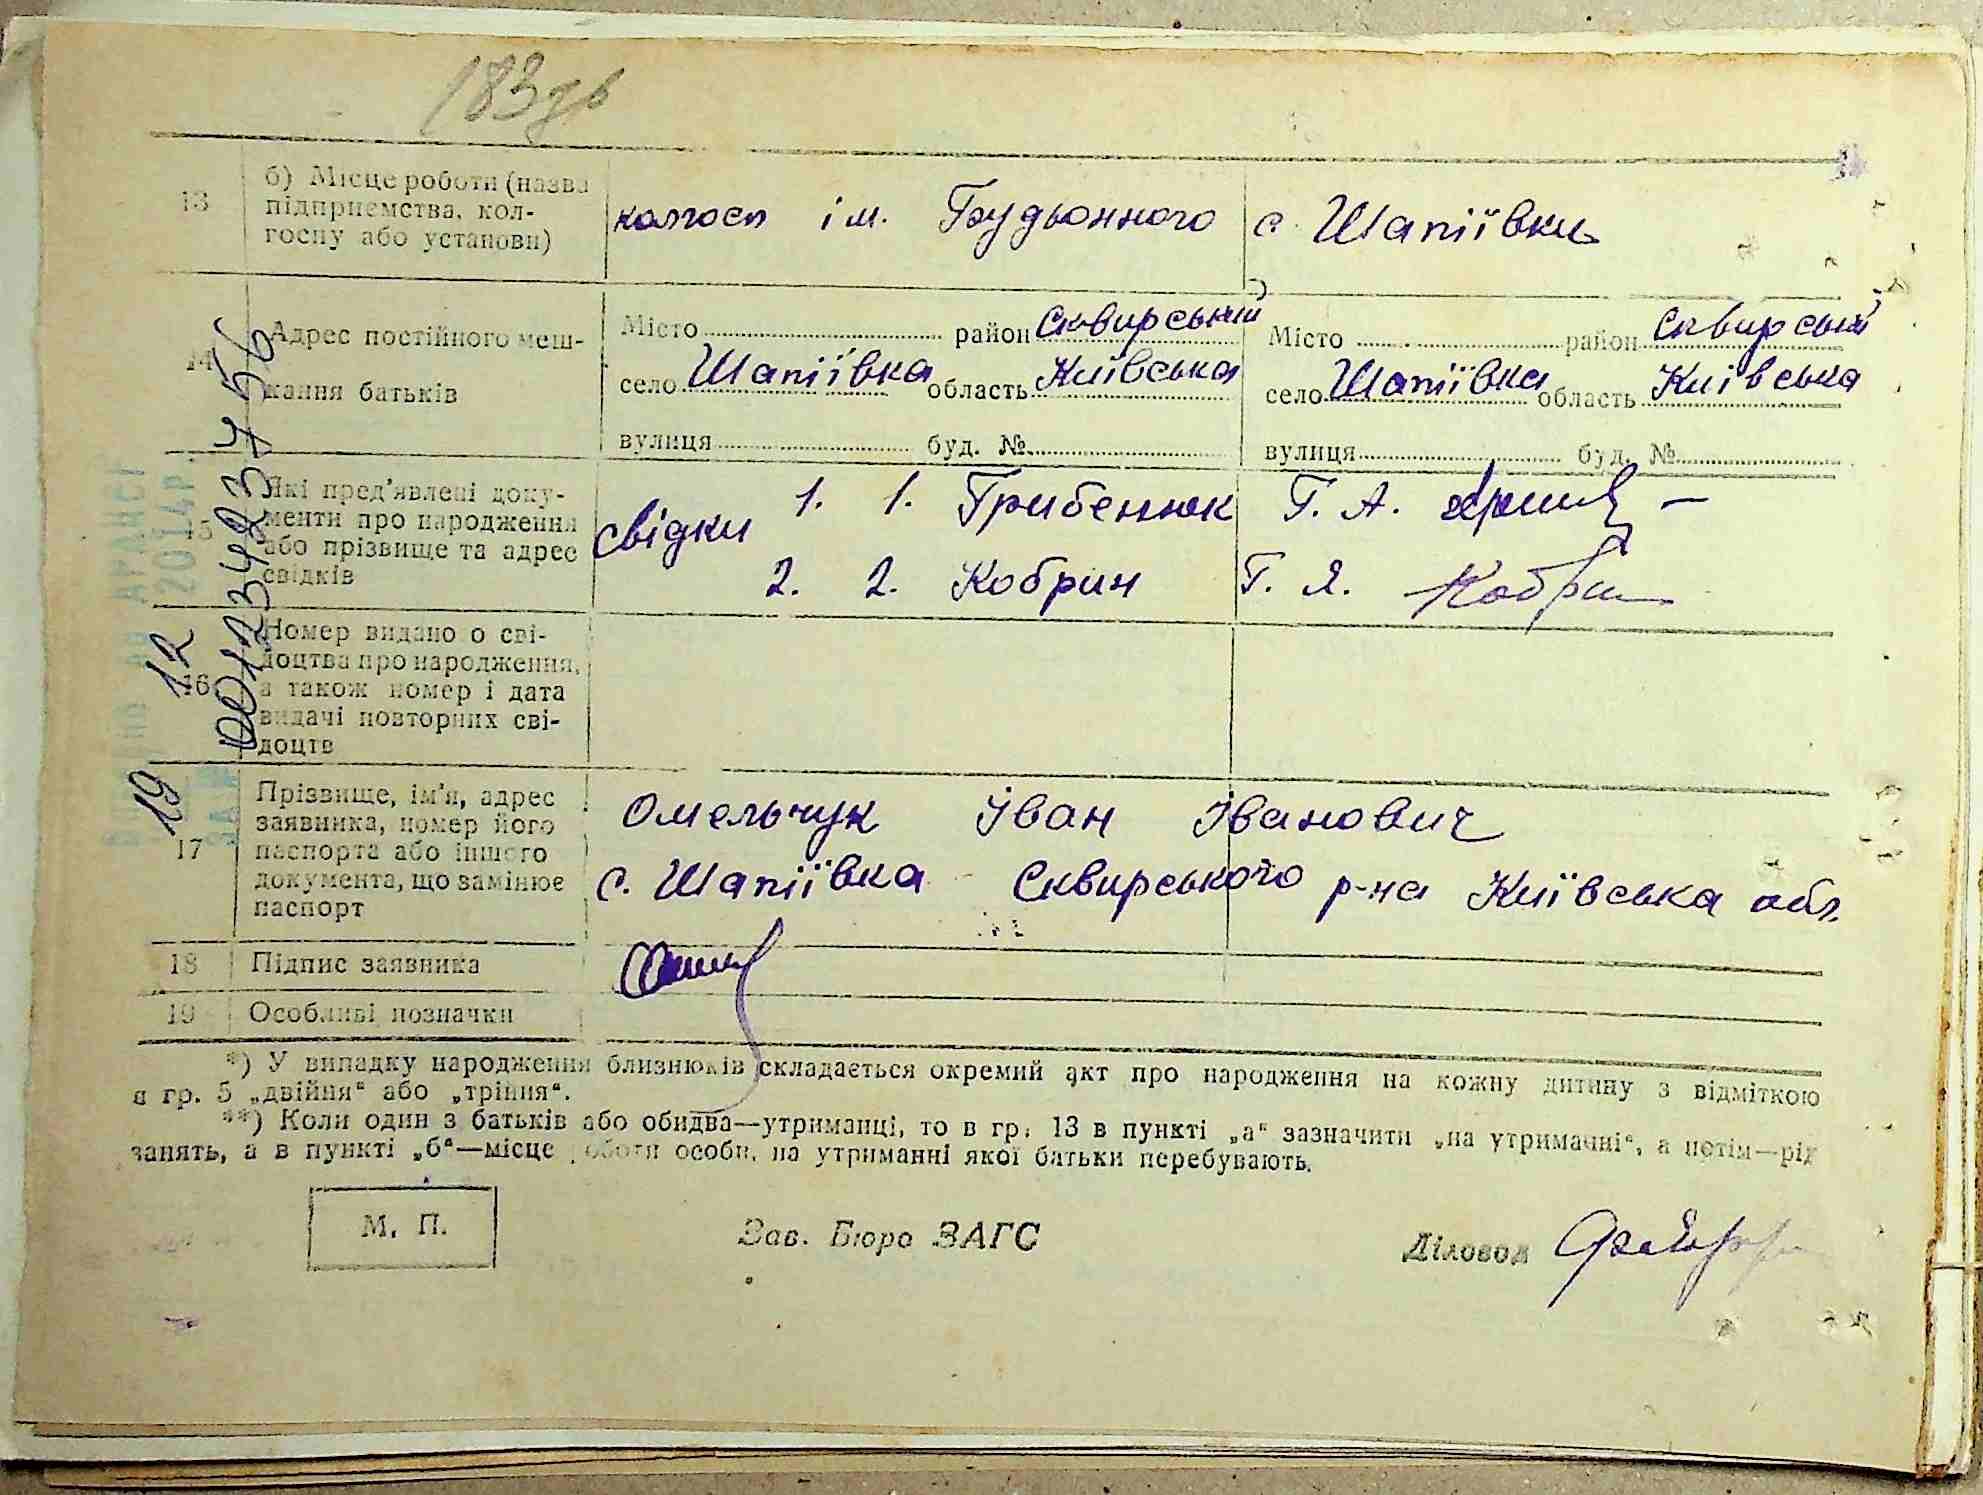 183зв
13 б) Місце роботи (назва
підприємства, кол-
госпу або установи)
колгосп ім. Будьонного с. Шапіївки
14 Адрес постійного меш-
кання батьків
Місто район Сквирський
село Шапіївка область Київська
вулиця буд. №
Місто район Сквирський
село Шапіївка область Київська
вулиця буд. №
15 Які пред'явлені доку-
менти про народження
або прізвище та адрес
свідків
свідки 1. 1. Грибенюк Г. А.
2. 2. Кобрин Г. Я. Кобрин
16 Номер видано о сві-
доцтва про народження,
а також номер і дата
видачі повторних сві-
доцтв
17 Прізвище, ім'я, адрес
заявника, номер його
паспорта або іншого
документа, що замінює
паспорт
Омельчук Іван Іванович
с. Шапіївка Сквирського р-на Київська обл.
18 Підпис заявника
19 Особливі позначки
*) У випадку народження близнюків складається окремий акт про народження на кожну дитину з відміткою
в гр. 5 „двійня“ або „трійня“.
**) Коли один з батьків або обидва—утриманці, то в гр. 13 в пункті „а“ зазначити „на утриманні“, а потім—рід
занять, а в пункті „б“—місце роботи особи, на утриманні якої батьки перебувають.
М. П.
Зав. Бюро ЗАГС
Діловод
19 12
2014р.
00123423756